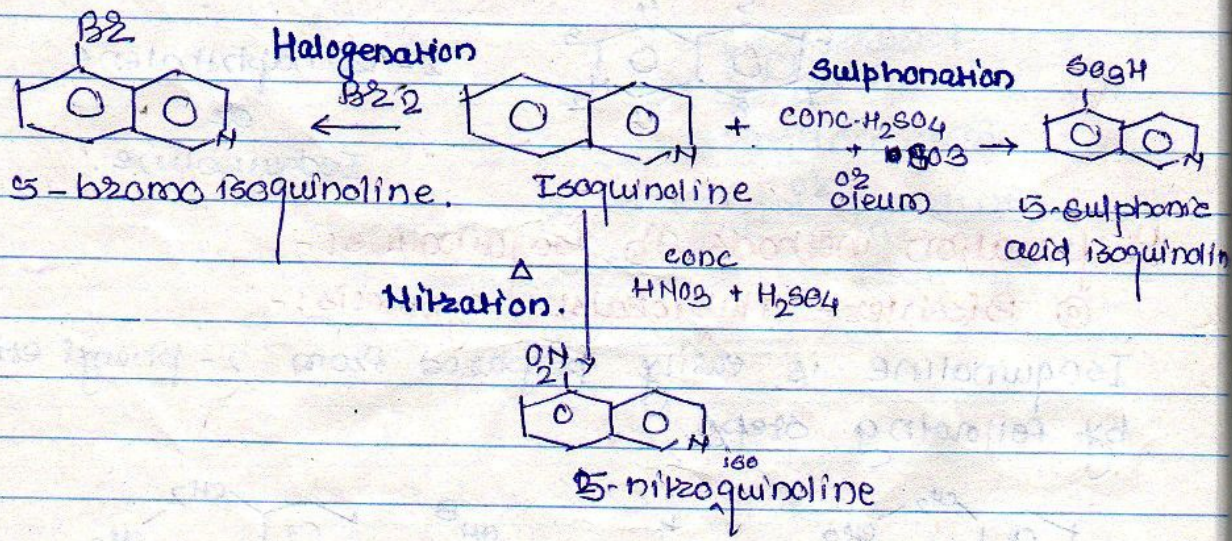 Br
Halogenation
Br2
Sulphonation
SO3H
+ conc. H2SO4
+ SO3
or
oleum
N
N
N
5-bromo isoquinoline.
Isoquinoline
5-sulphonic
acid isoquinolin
Δ
conc
HNO3 + H2SO4
Nitration.
O2N
N
5-nitro iso quinoline